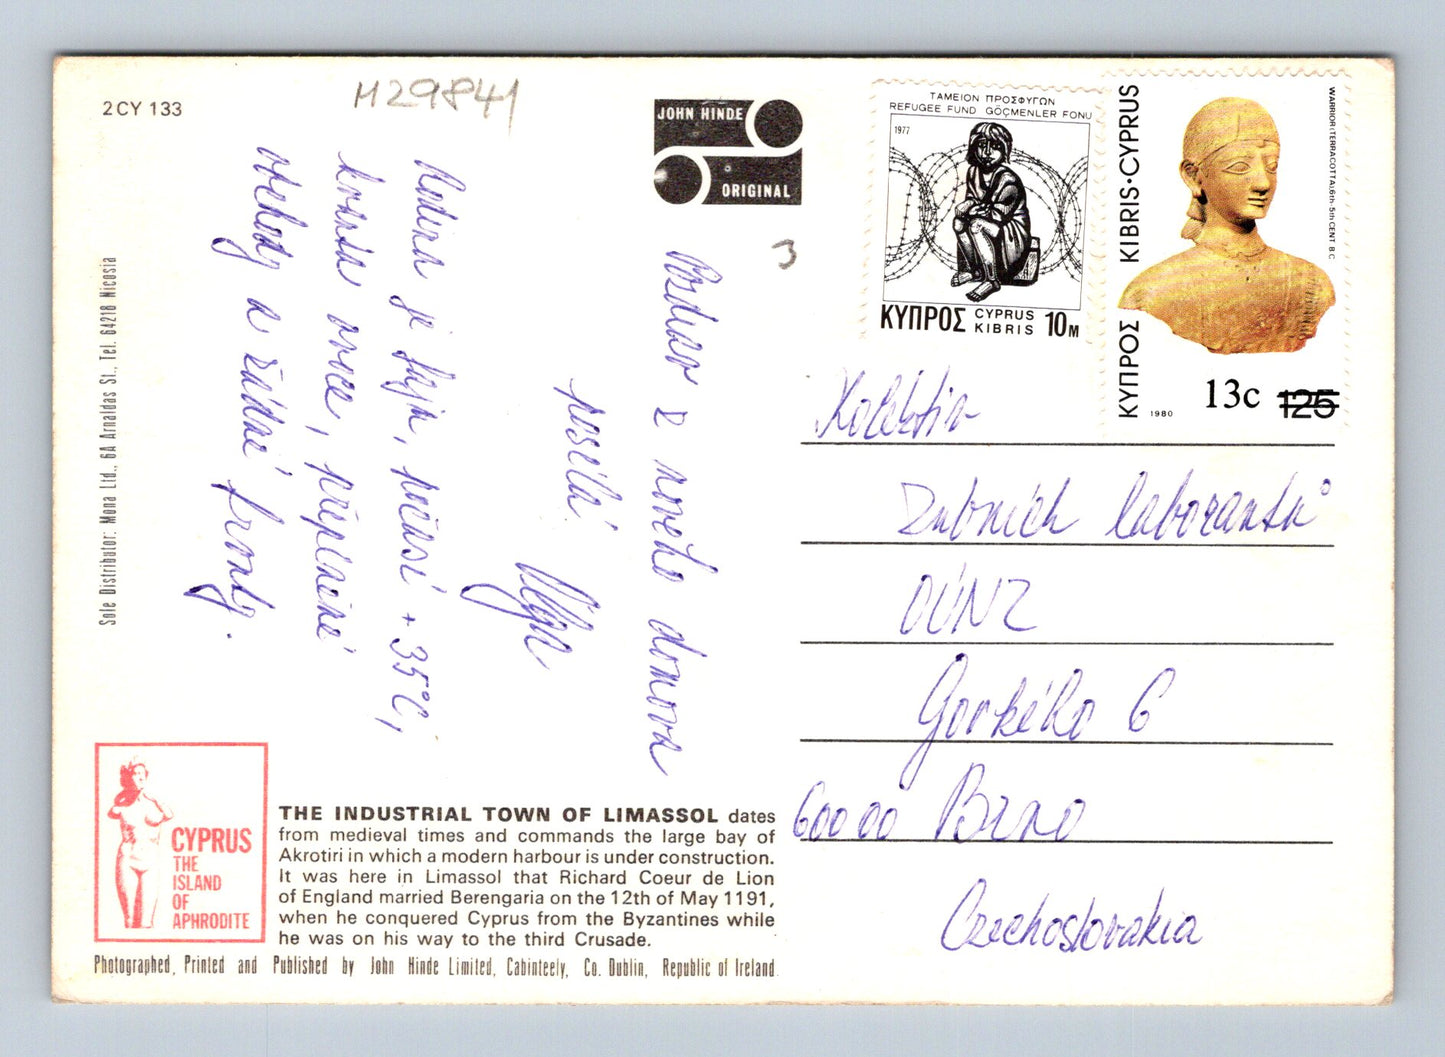 2CY 133
H29841
JOHN HINDE
ORIGINAL
3
ΤΑΜΕΙΟΝ ΠΡΟΣΦΥΓΩΝ
REFUGEE FUND GÖÇMENLER FONU
1977
ΚΥΠΡΟΣ CYPRUS KIBRIS 10M
ΚΥΠΡΟΣ KIBRIS·CYPRUS
WARRIOR (TERRACOTTA) 6th-5th CENT B.C.
1980
13c 125
Pozdrav z nového domova
posílá
Olga
Rodina je fajn, počasí +35°C,
hodně ovoce, přeplněné
obchody a žádné fronty.
Kolektiv
Zubních laborantů
OÚNZ
Gorkého 6
600 00 Brno
Czechoslovakia
Sole Distributor: Mona Ltd., 6A Arnaldas St., Tel. 64218 Nicosia
CYPRUS
THE
ISLAND
OF
APHRODITE
THE INDUSTRIAL TOWN OF LIMASSOL dates
from medieval times and commands the large bay of
Akrotiri in which a modern harbour is under construction.
It was here in Limassol that Richard Coeur de Lion
of England married Berengaria on the 12th of May 1191,
when he conquered Cyprus from the Byzantines while
he was on his way to the third Crusade.
Photographed, Printed and Published by John Hinde Limited, Cabinteely, Co. Dublin, Republic of Ireland